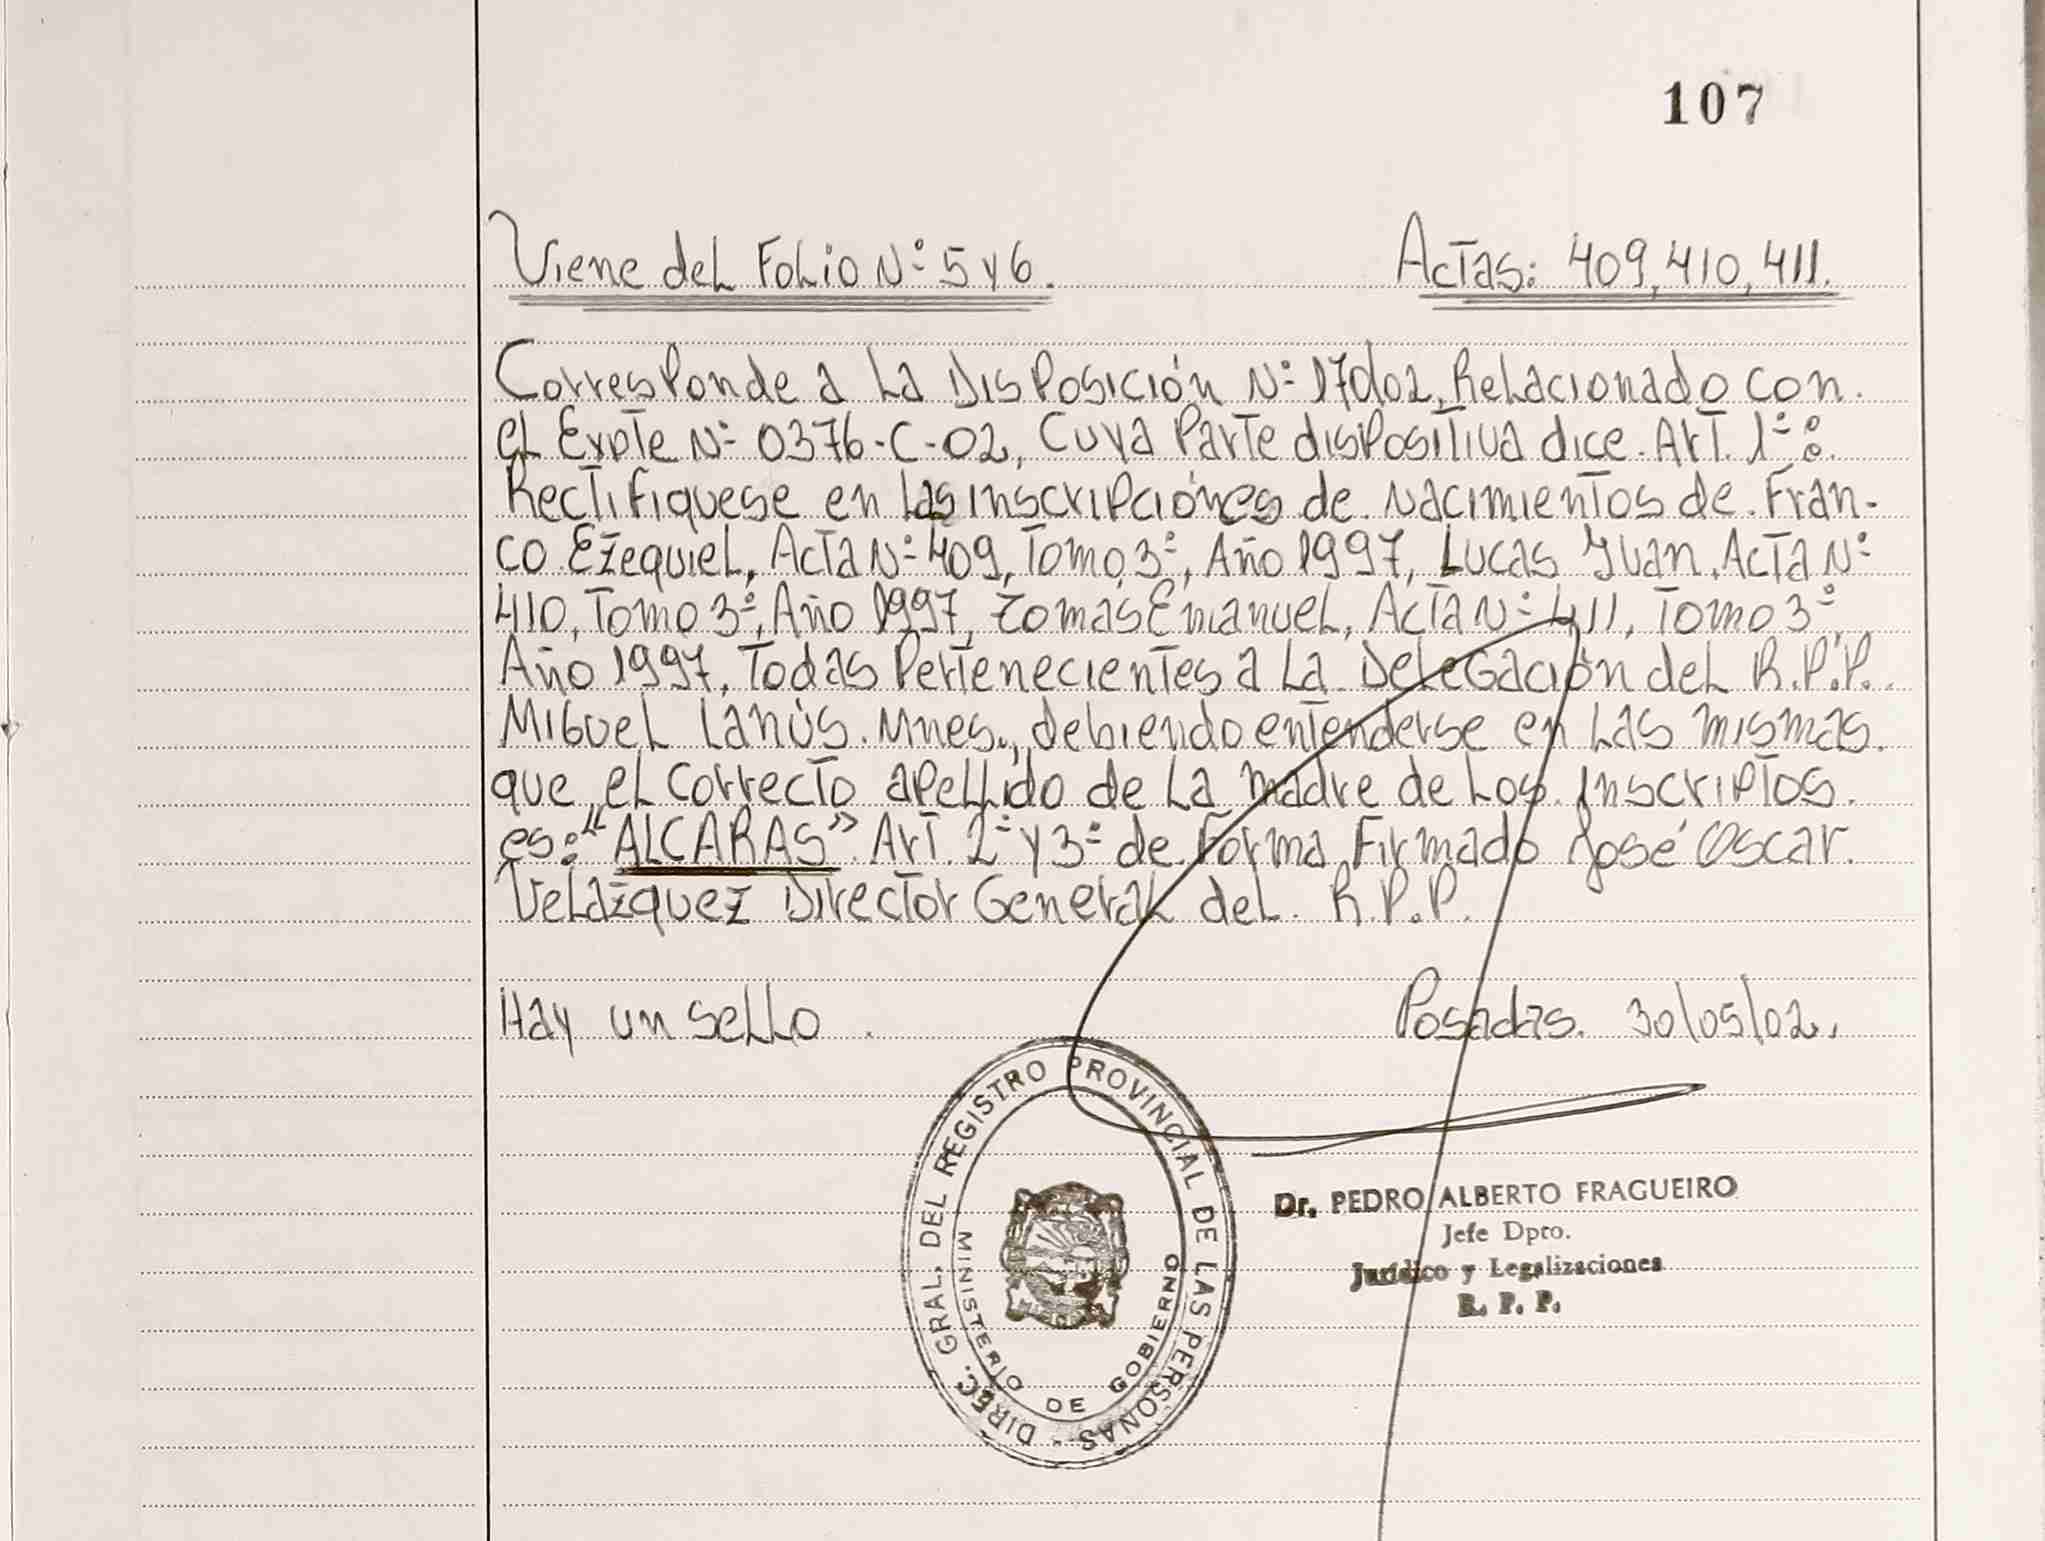 107
Viene del Folio N° 5 y 6. Actas: 409, 410, 411.
Corresponde a la Disposición N° 170/02, Relacionado con
el Expte N° 0376-C-02, Cuya Parte dispositiva dice. Art. 1°:
Rectifiquese en las inscripciones de nacimientos de Fran-
co Ezequiel, Acta N° 409, Tomo 3°, Año 1997, Lucas Juan, Acta N°
410, Tomo 3°, Año 1997, Tomás Emanuel, Acta N° 411, Tomo 3°
Año 1997, Todas Pertenecientes a la Delegación del R.P.P.
Miguel Lanús. Mnes., debiendo entenderse en las mismas
que el correcto apellido de la madre de los inscriptos
es: "ALCARAS". Art. 2° y 3° de Forma Firmado José Oscar
Velázquez Director General del R.P.P.
Hay un sello. Posadas. 30/05/02.
DIREC. GRAL. DEL REGISTRO PROVINCIAL DE LAS PERSONAS -
MINISTERIO DE GOBIERNO
Dr. PEDRO ALBERTO FRAGUEIRO
Jefe Dpto.
Jurídico y Legalizaciones
R. P. P.